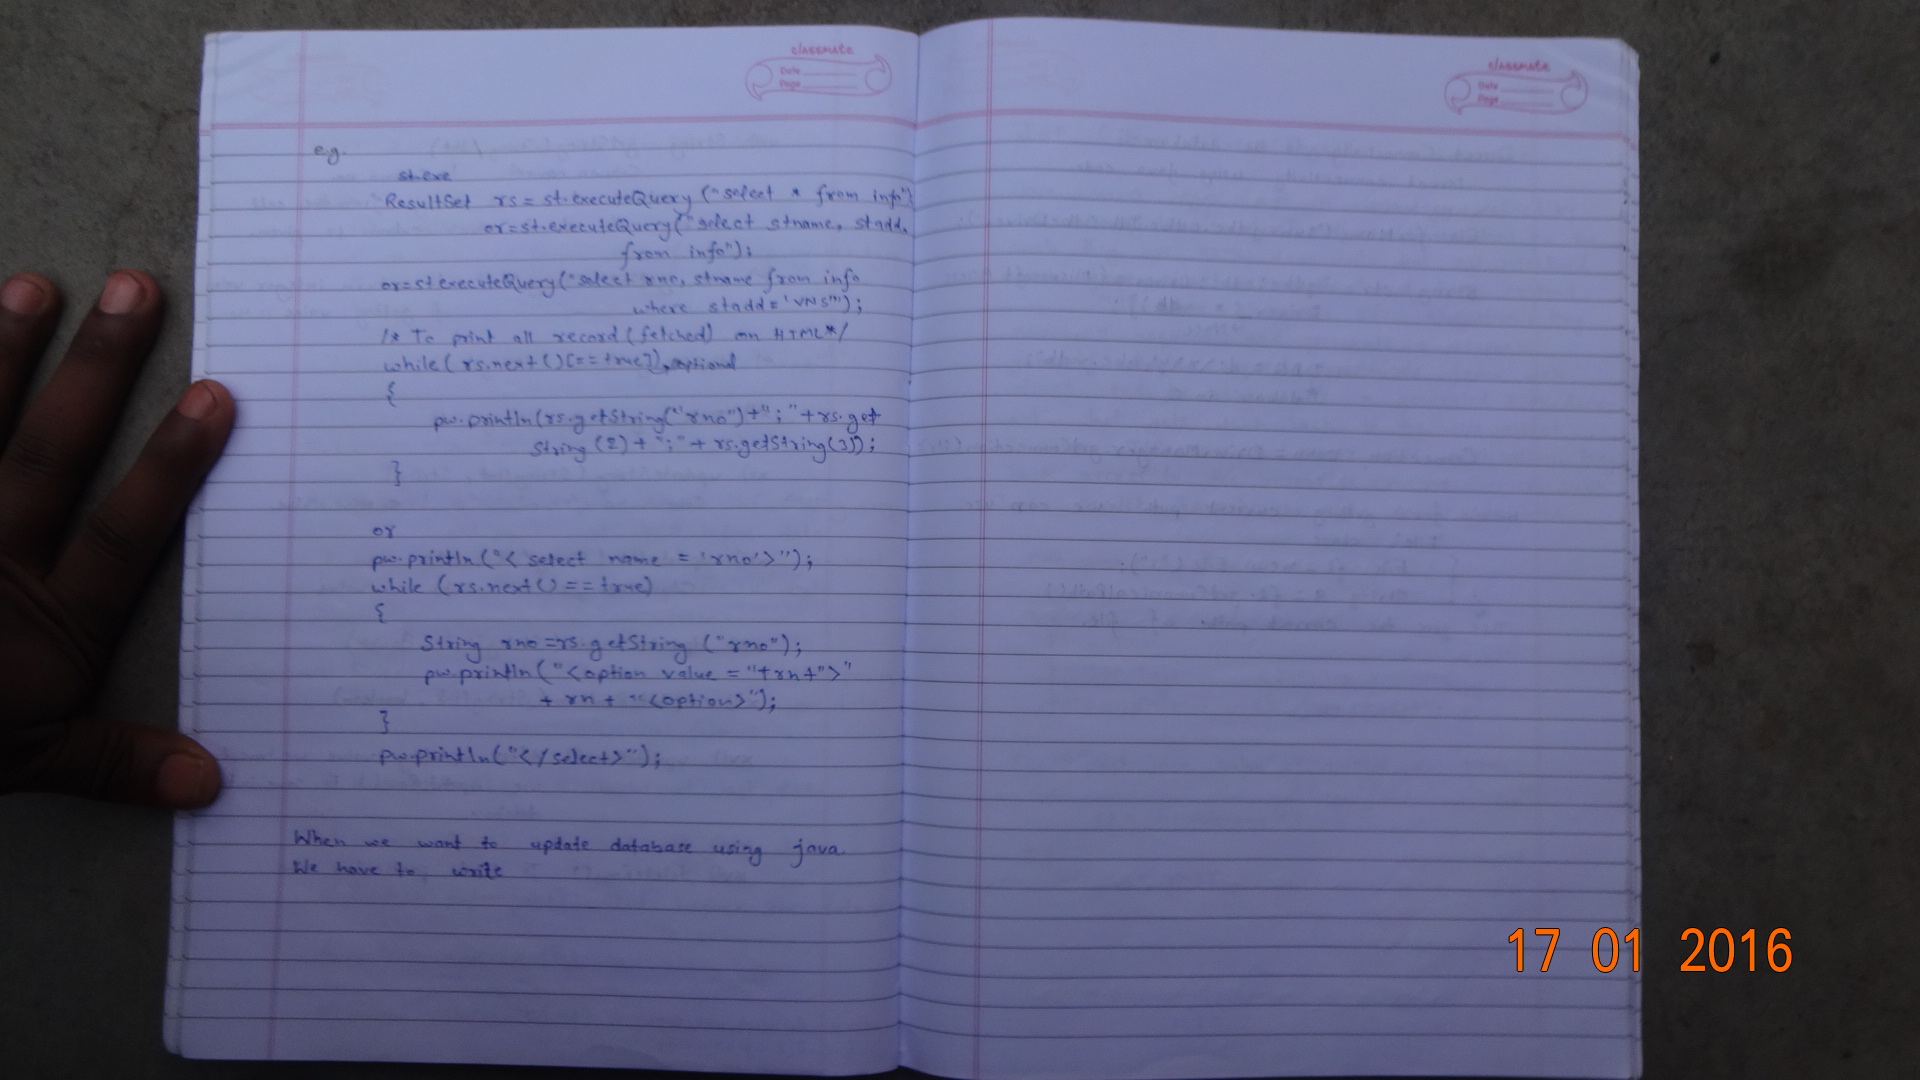 classmate
Date
Page
e.g.
st.exe
ResultSet rs = st.executeQuery ("select * from info")
or=st.executeQuery("select stname, stadd,
from info");
or=st executeQuery("select rno, stname from info
where stadd='VNS'");
/* To print all record (fetched) on HTML*/
while( rs.next()[==true]) optional
{
pw.println(rs.getString("rno")+";"+rs.get
String (2)+";"+ rs.getString(3));
}
or
pw.println("< select name = 'rno'>");
while (rs.next()==true)
{
String rno =rs.getString ("rno");
pw.println("<option value = "+rn+">"
+ rn + "<option>");
}
pw.println("</select>");
When we want to update database using java
We have to write
classmate
Date
Page
17 01 2016